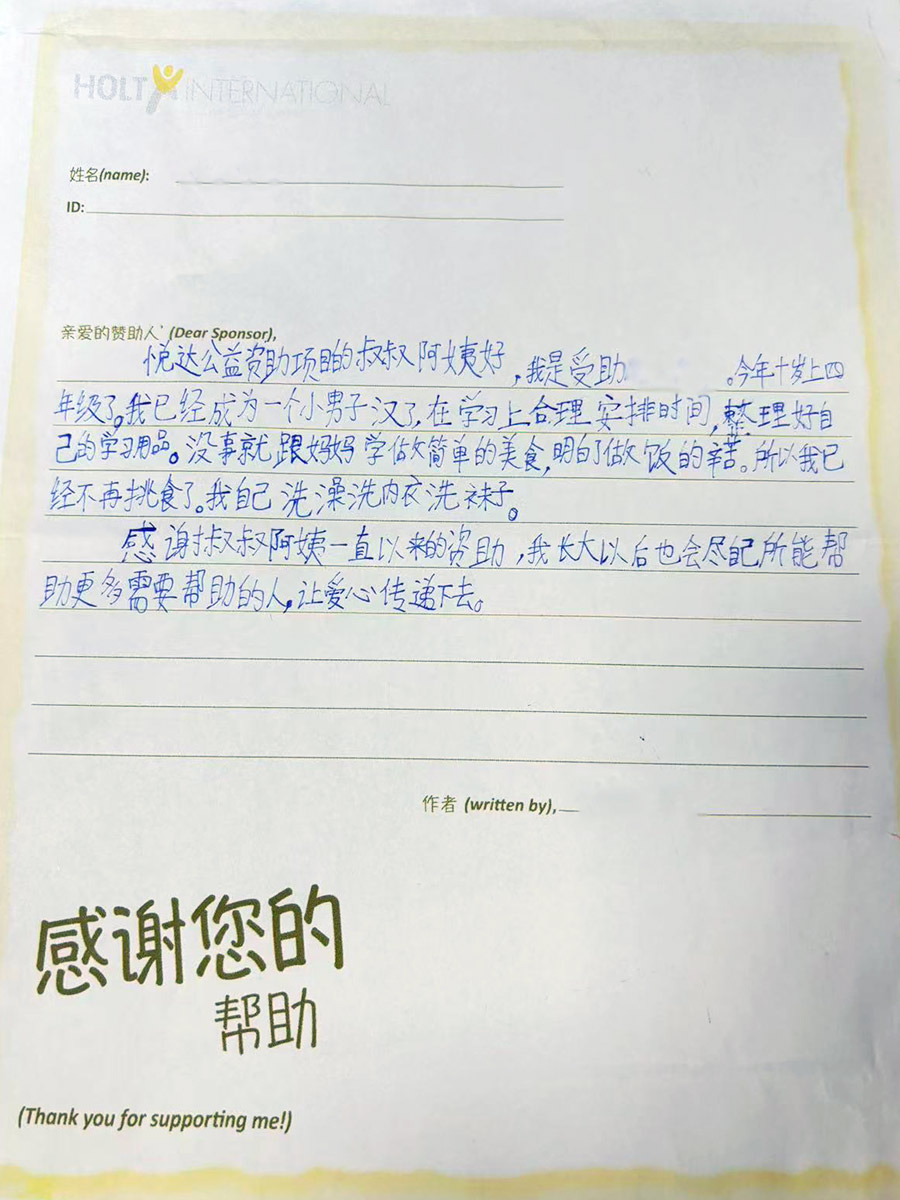 HOLT INTERNATIONAL
姓名(name):
ID:
亲爱的赞助人 (Dear Sponsor),
悦达公益资助项目的叔叔阿姨好,我是受助 。今年十岁上四
年级了。我已经成为一个小男子汉了,在学习上合理安排时间,整理好自
己的学习用品。没事就跟妈妈学做简单的美食,明白了做饭的辛苦。所以我已
经不再挑食了。我自己洗澡洗内衣洗袜子。
感谢叔叔阿姨一直以来的资助,我长大以后也会尽己所能帮
助更多需要帮助的人,让爱心传递下去。
作者 (written by),
感谢您的
帮助
(Thank you for supporting me!)